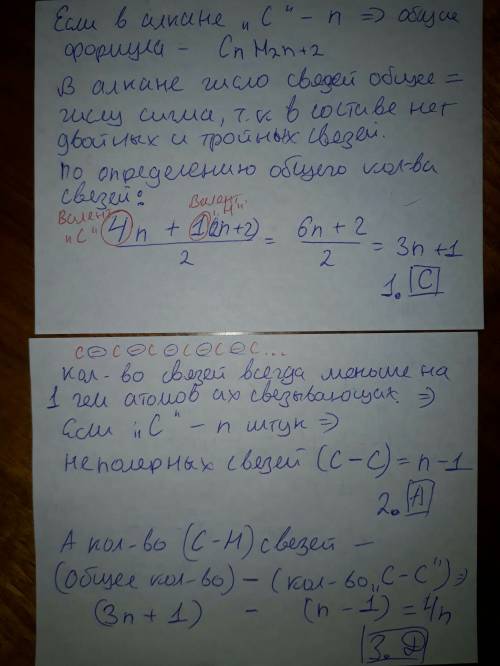 Если в алкане „С“ - n => общая
формула - CnH2n+2
В алкане число связей общее =
числу сигма, т.к в составе нет
двойных и тройных связей.
По определению общего кол-ва
связей:
Валент „С“ Валент „H“
4n + 1(2n+2) / 2 = 6n + 2 / 2 = 3n + 1
1. C
C-C-C-C-C-C...
кол-во связей всегда меньше на
1 чем атомов их связывающих. =>
Если „С“ - n штук =>
неполярных связей (C-C) = n-1
2. A
А кол-во (C-H) связей -
(Общее кол-во) - (кол-во „C-C“) =>
(3n + 1) - (n - 1) = 4n
3. D